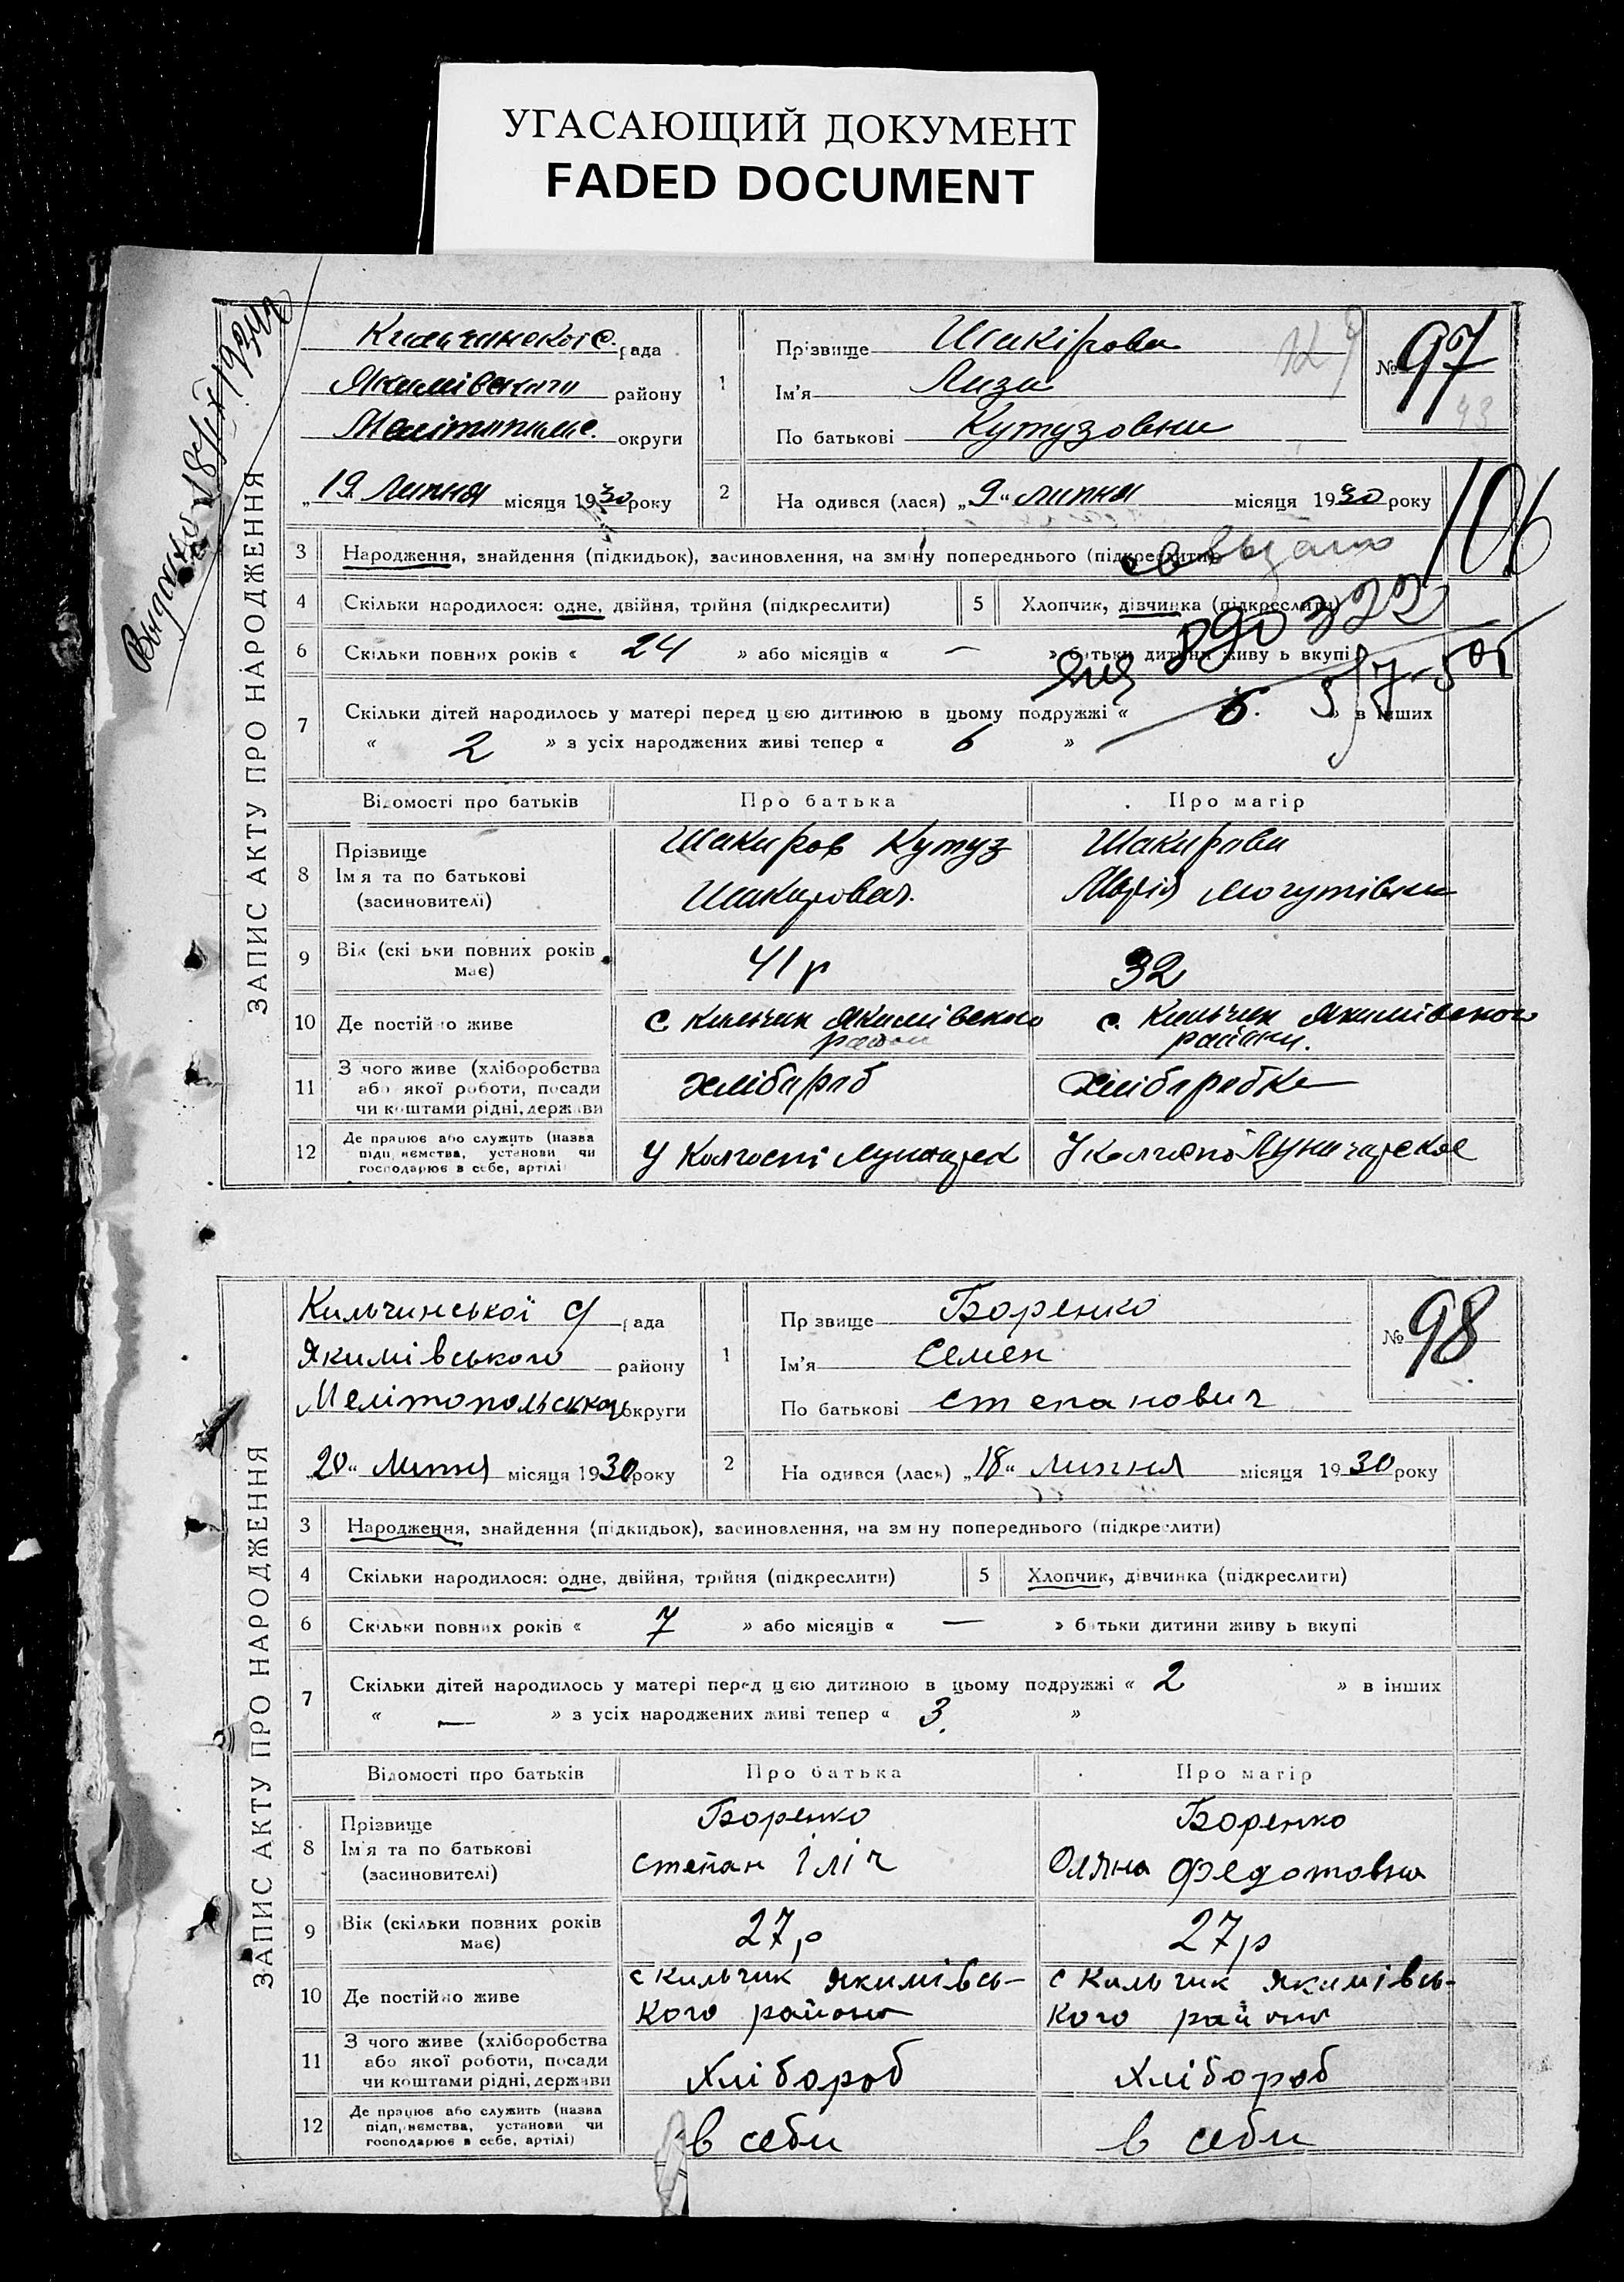 УГАСАЮЩИЙ ДОКУМЕНТ
FADED DOCUMENT
ЗАПИС АКТУ ПРО НАРОДЖЕННЯ
рада
Якимівського району
округи
„19 Липня місяця 1930 року
1
Прізвище Шакірова
Ім'я Лиза
По батькові Кутузовна
№ 97
43
2
На одився (лася) „9“ липня місяця 1930 року
106
3 Народження, знайдення (підкидьок), засиновлення, на зміну попереднього (підкреслити)
4 Скільки народилося: одне, двійня, трійня (підкреслити) 5 Хлопчик, дівчинка (підкреслити)
6 Скільки повних років « 24 » або місяців « — » батьки дитини живу ь вкупі
7 Скільки дітей народилось у матері перед цєю дитиною в цьому подружжі « 6. » в інших
« 2 » з усіх народжених живі тепер « 6 »
Відомості про батьків Про батька Про матір
8 Прізвище Ім'я та по батькові (засиновителі)
Шакиров Кутуз
Шакирова
Марія
9 Вік (скі ьки повних років має) 41 р 32
10 Де постійно живе с Кильчик Якимівского район с. Кильчик Якимівского району.
11 З чого живе (хліборобства або якої роботи, посади чи коштами рідні, держави хлібороб хліборобка
12 Де працює або служить (назва підприємства, установи чи господарює в себе, артілі) У Колгоспі
ЗАПИС АКТУ ПРО НАРОДЖЕННЯ
Кильчинської с рада
Якимівського району
Мелітопольської округи
„20“ Липня місяця 1930 року
1
Пр звище Боренко
Ім'я Семен
По батькові Степанович
№ 98
2
На одився (лася) „18“ липня місяця 1930 року
3 Народження, знайдення (підкидьок), засиновлення, на зм ну попереднього (підкреслити)
4 Скільки народилося: одне, двійня, трійня (підкреслити) 5 Хлопчик, дівчинка (підкреслити)
6 Скільки повних років « 7 » або місяців « — » батьки дитини живу ь вкупі
7 Скільки дітей народилось у матері перед цєю дитиною в цьому подружжі « 2 » в інших
« — » з усіх народжених живі тепер « 3. »
Відомості про батьків Про батька Про матір
8 Прізвище Ім'я та по батькові (засиновителі)
Боренко Боренко
Степан Іліч Оляна Федотовна
9 Вік (скільки повних років має) 27 р 27 р
10 Де постійно живе с Кильчик Якимівсь- с Кильчик Якимівсь-
кого району кого району
11 З чого живе (хліборобства або якої роботи, посади чи коштами рідні, держави Хлібороб Хлібороб
12 Де працює або служить (назва підприємства, установи чи господарює в себе, артілі) в себи в себи